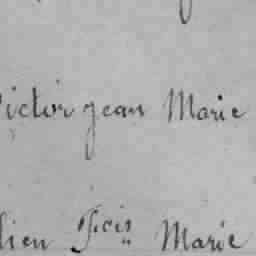 Victor jean Marie
lien Marie